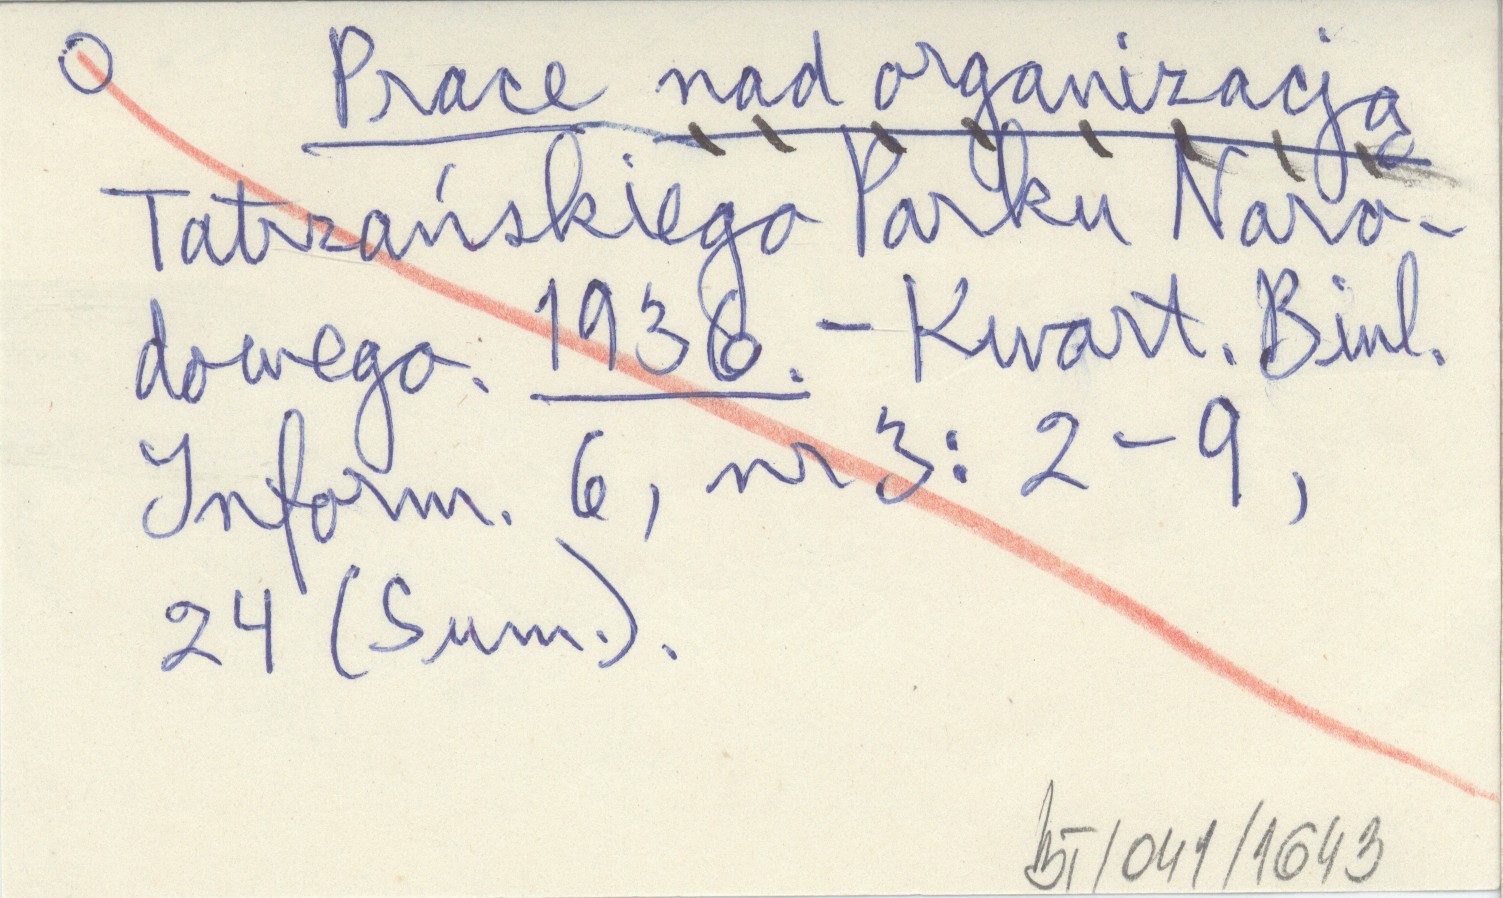 Prace nad organizacją
Tatrzańskiego Parku Naro-
dowego. 1936. - Kwart. Biul.
Inform. 6, nr 3: 2-9,
24 (Sum.).
BT/041/1643